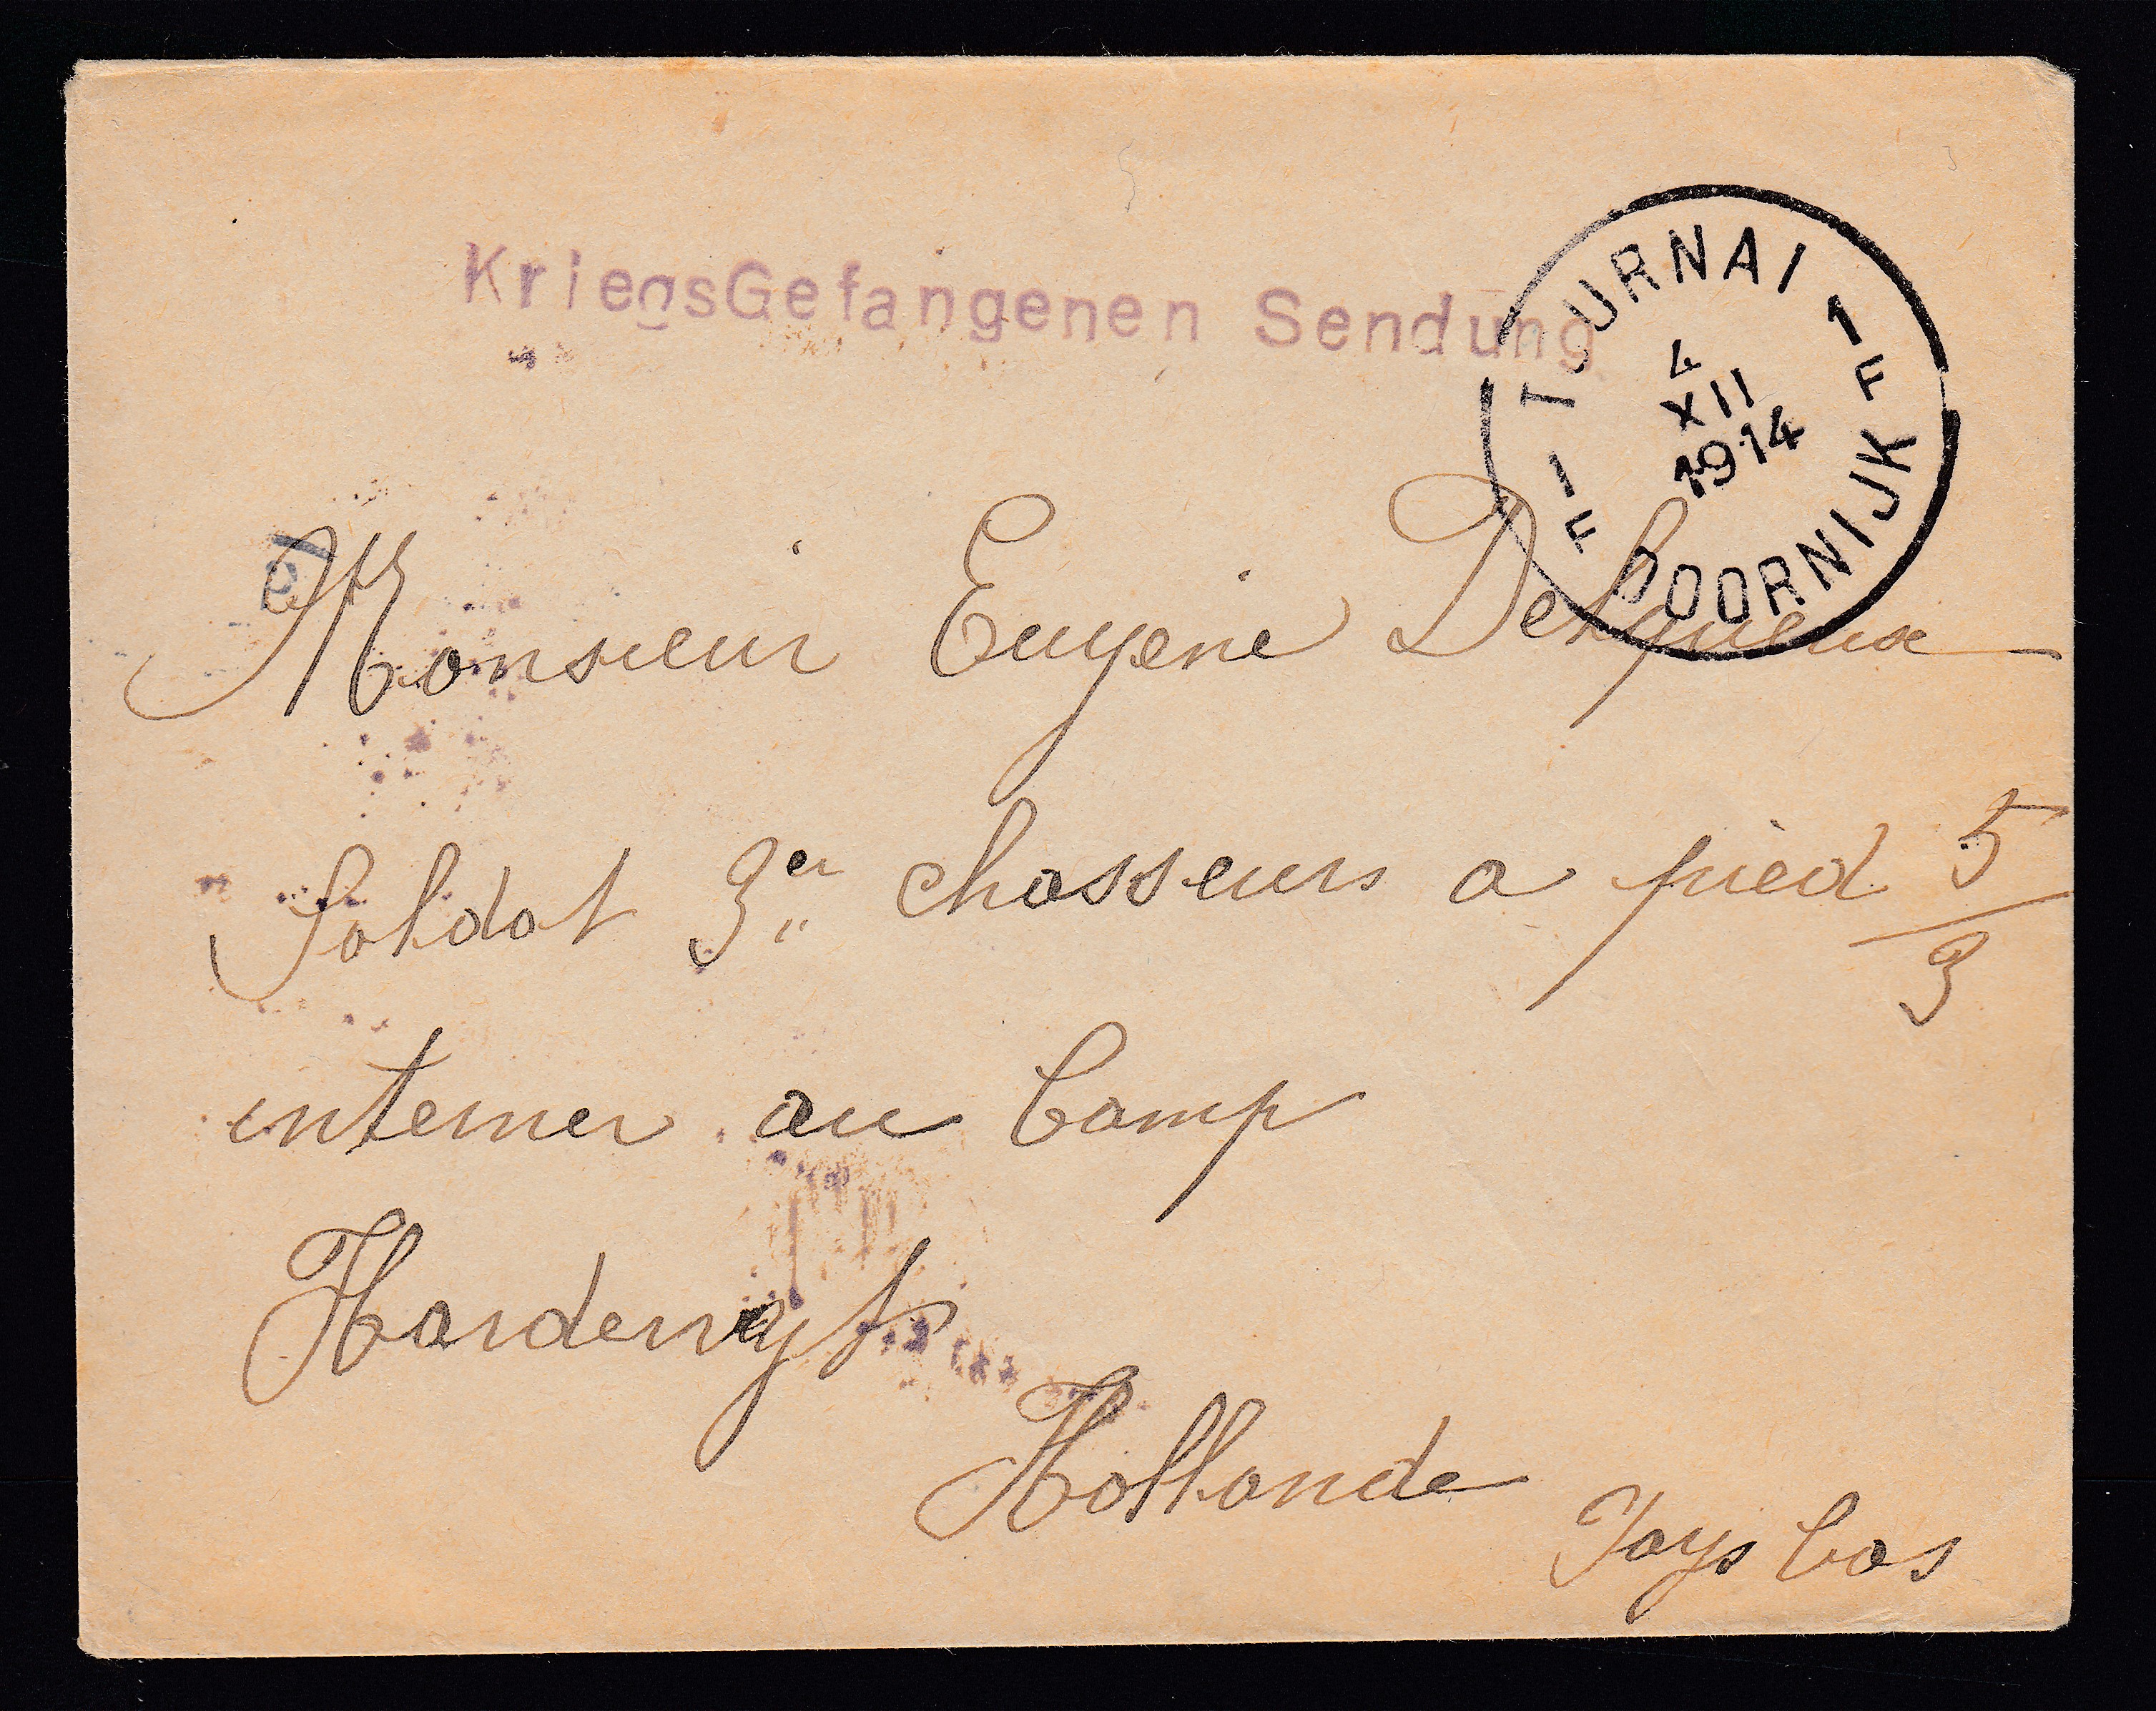 KriegsGefangenen Sendung
TOURNAI 1
F
4
XII
1914
1
F
DOORNIJK
Monsieur Eugene Delqueux
Soldat 3er chasseurs a pied 5/3
interner au Camp
Harderwyk
Hollande
Pays bas